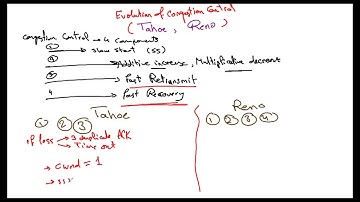 Evolution of Congestion Control
( Tahoe , Reno )
Congestion Control → 4 Components
① → Slow Start (SS)
② → Additive increase, Multiplicative decrease
③ → Fast Retransmit
4 → Fast Recovery
Tahoe
① ② ③
if loss → 3 duplicate ACK
→ Time out
→ cwnd = 1
→ ss
Reno
① ② ③ ④